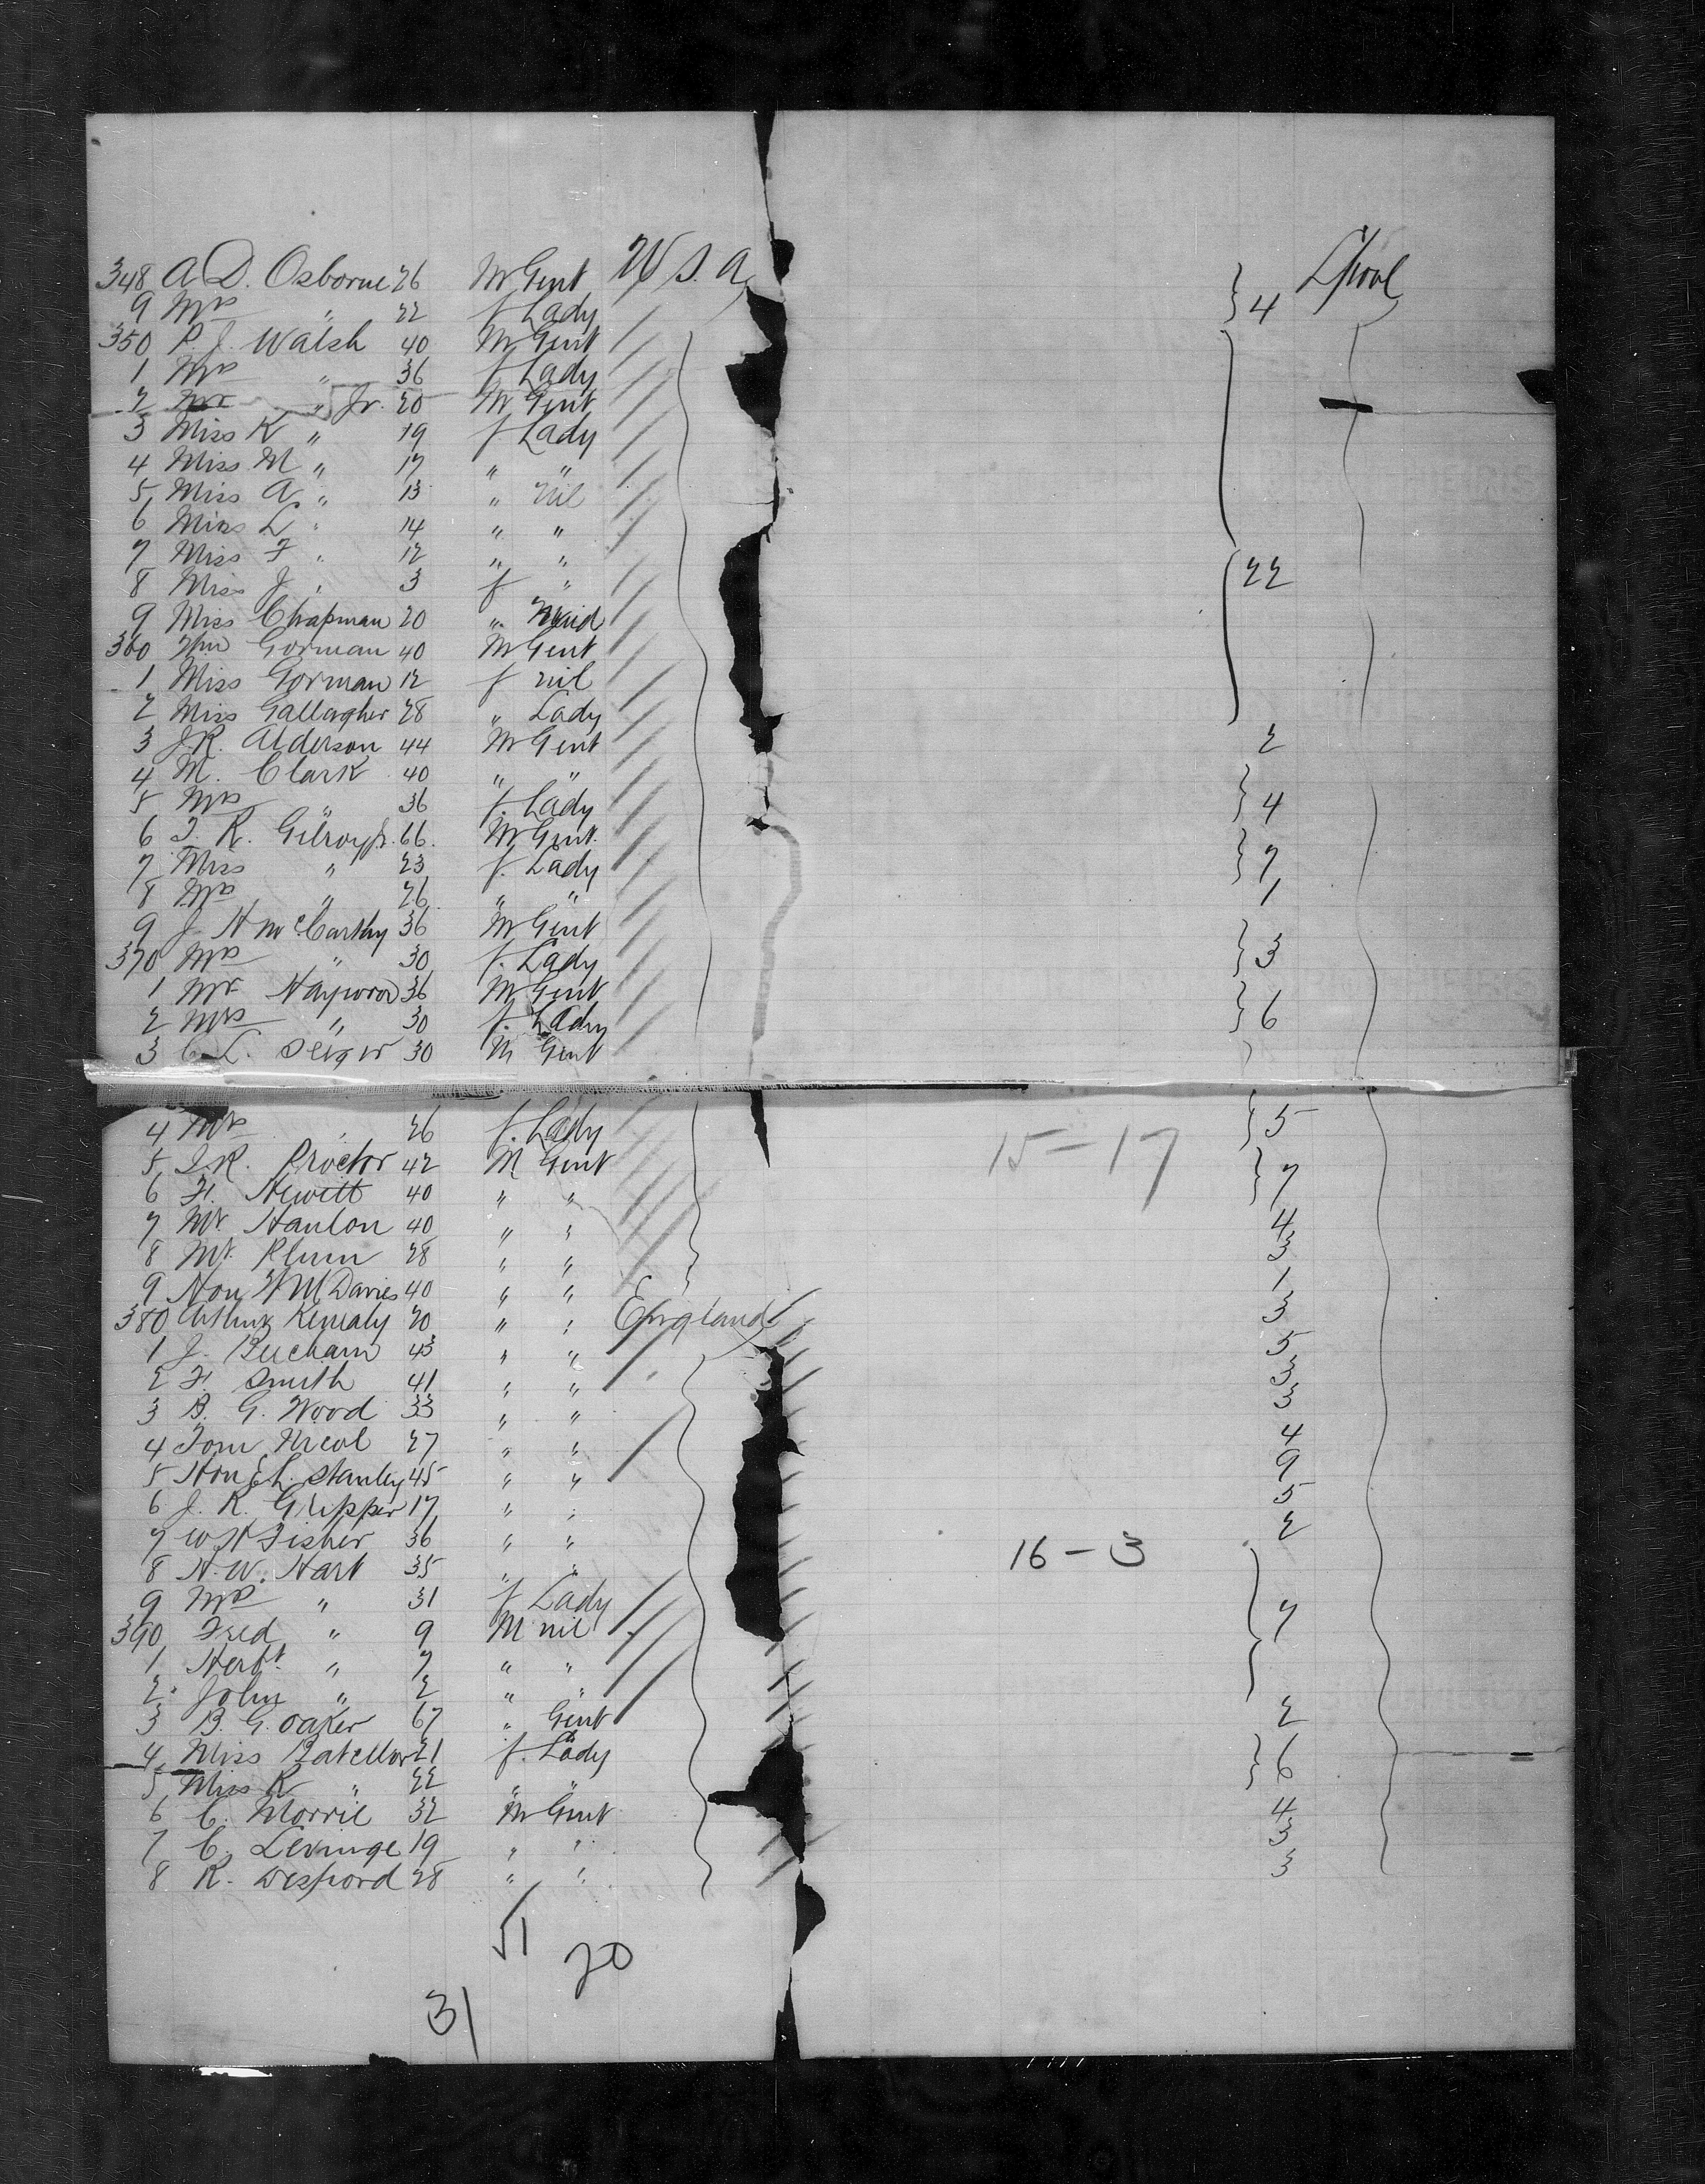 348 A D. Osborne 26 M Gent U S. A. 4 L'pool
9 Mrs " 22 f Lady
350 P. J. Walsh 40 M Gent
1 Mrs " 36 f Lady
2 Mr " Jr. 20 M Gent
3 Miss K " 19 f Lady
4 Miss M " 17 " "
5 Miss A " 13 " nil
6 Miss L " 14 " "
7 Miss F " 12 " " 22
8 Miss J " 3 f "
9 Miss Chapman 20 " Maid
360 Wm Gorman 40 M Gent
1 Miss Gorman 12 f nil
2 Miss Gallagher 28 " Lady
3 J.R. Alderson 44 M Gent 2
4 M. Clark 40 " "
5 Mrs " 36 f. Lady 4
6 T. R. Gilroy Jr. 66. M Gent.
7 Miss " 23 f. Lady 7
8 Mrs " 26 " " 1
9 J H McCarthy 36 M Gent
370 Mrs " 30 f. Lady 3
1 Mr Haywood 36 M Gent
2 Mrs " 30 f. Lady 6
3 C. L. 30 M Gent
4 Mrs " 26 f. Lady 5
15-17
5 J.R. Proctor 42 M Gent
6 H. Hewitt 40 " " 7
7 Mr. Hanlon 40 " " 4
8 Mr. Plum 28 " " 3
9 Hon W M Davies 40 " " 1
380 Arthur Kenealy 20 " " England 3
1 J. Beecham 43 " " 5
2 H. Smith 41 " " 3
3 B. G. Wood 33 " " 3
4 Tom Nicol 27 " " 4
5 Hon E L. Stanley 45 " " 9
6 J. R. Gripper 17 " " 5
7 W H Fisher 36 " " 2
16-3
8 H. W. Hart 35 " "
9 Mrs " 31 f Lady
390 Fred " 9 M nil 7
1 Herbt. " 7 " "
2 John " 2 " "
3 B. G. Oaker 67 " Gent 2
4 Miss 21 f. Lady
5 Miss K " 22 " " 6
6 C. Morril 32 M Gent 4
7 C. Levinge 19 " " 3
8 R. 28 " " 3
51
20
31